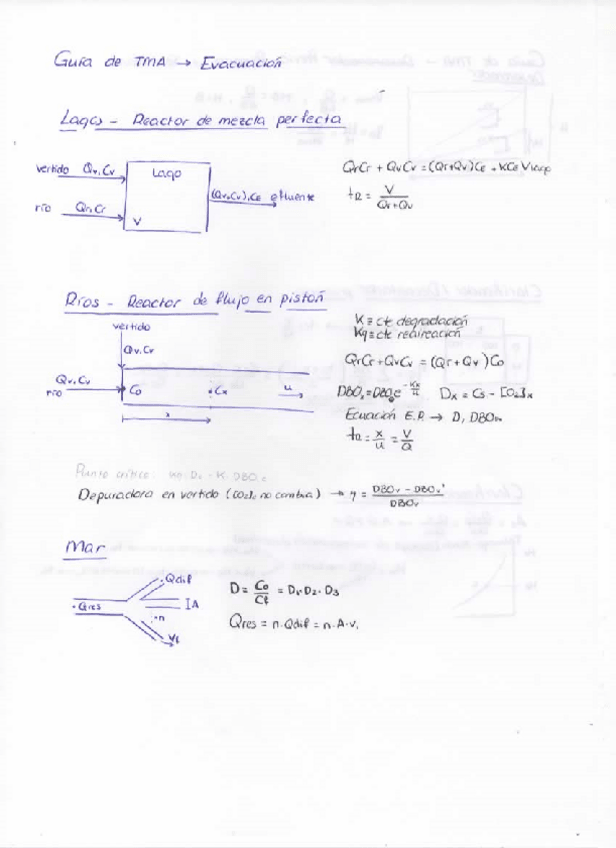 Guía de TMA → Evacuación
Lagos - Reactor de mezcla perfecta
vertido Qv,Cv
Lago
(Qv,Cv),Ce efluente
río Qr,Cr
V
QrCr + QvCv = (Qr+Qv)Ce + KCe Vlago
tR = V / Qr+Qv
Ríos - Reactor de flujo en pistón
vertido
Qv,Cv
Qv,Cv
río
Co
Cx
u
x
K ≡ cte degradación
Kq ≡ cte reaireación
QrCr + QvCv = (Qr + Qv)Co
DBOx = DBOo e^-Kx/u Dx = Cs - [O2]x
Ecuación E.P. → D, DBO
tR = x/u = V/Q
Punto crítico: Kq·Dc = K·DBOc
Depuradora en vertido ([O2]o no cambia) → η = DBOv - DBOv' / DBOv
Mar
Qdif
Qres
IA
n
V1
D = Co/Cf = D1·D2·D3
Qres = n·Qdif = n·A·v1